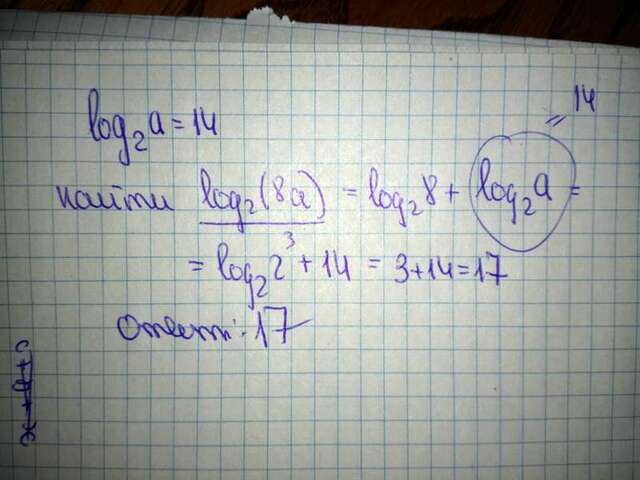 log₂a = 14
= 14
найти log₂(8a) = log₂8 + log₂a =
= log₂2³ + 14 = 3+14=17
Ответ: 17